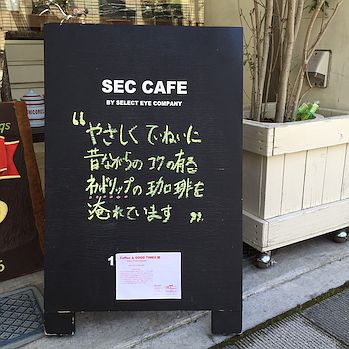 SEC CAFE
BY SELECT EYE COMPANY
“やさしく ていねいに
昔ながらの コクの有る
ネルドリップの 珈琲を
淹れています”
1
Coffee & GOOD TIMES